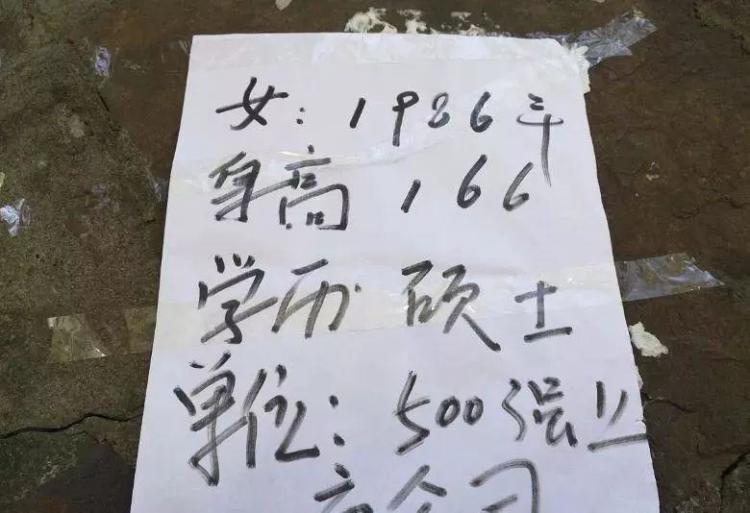 女：1986年
身高 166
学历 硕士
单位：500强业
公司